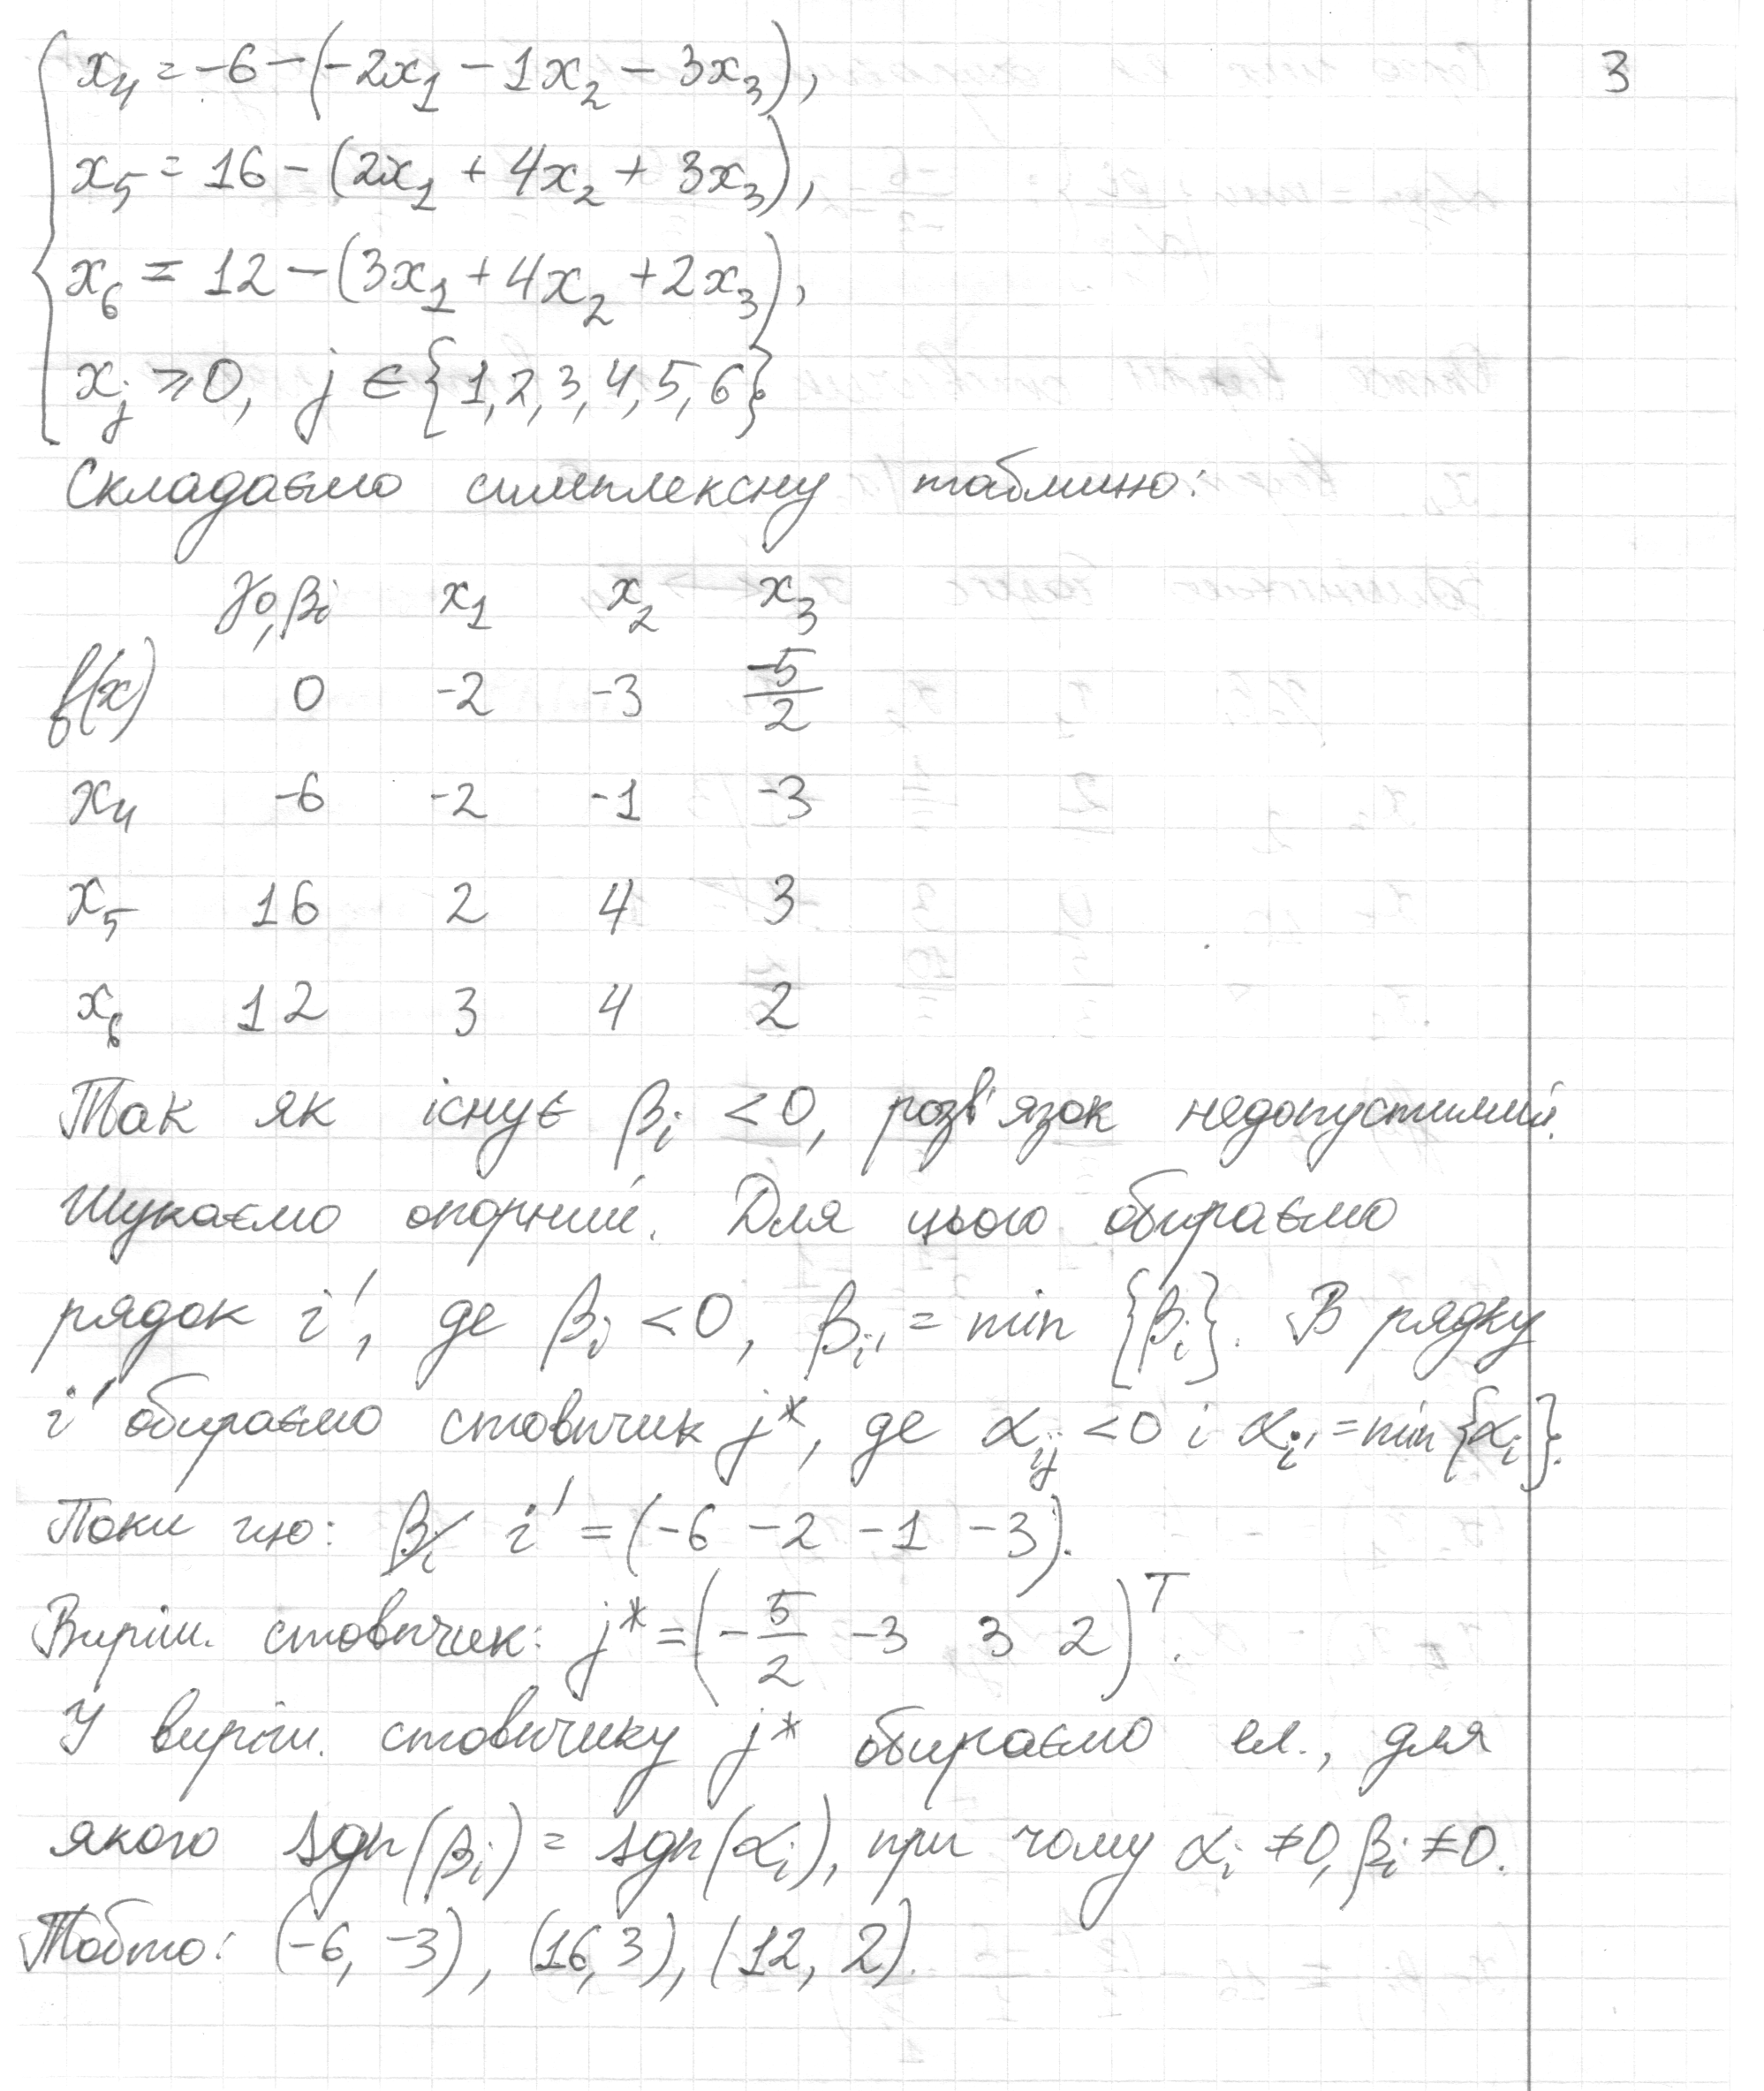 x₄ = -6 - (-2x₁ - 1x₂ - 3x₃), 3
x₅ = 16 - (2x₁ + 4x₂ + 3x₃),
x₆ = 12 - (3x₁ + 4x₂ + 2x₃),
xⱼ ≥ 0, j ∈ {1, 2, 3, 4, 5, 6}.
Складаємо симплексну таблицю:
γ₀, βᵢ x₁ x₂ x₃
f(x) 0 -2 -3 -5/2
x₄ -6 -2 -1 -3
x₅ 16 2 4 3
x₆ 12 3 4 2
Так як існує βᵢ < 0, розв'язок недопустимий.
Шукаємо опорний. Для цього обираємо
рядок i', де βᵢ < 0, βᵢ' = min {βᵢ}. В рядку
i' обираємо стовпчик j*, де αᵢⱼ < 0 і αᵢ' = min {αᵢ}.
Поки що: i' = (-6 -2 -1 -3).
Виріш. стовпчик: j* = (-5/2 -3 3 2)ᵀ.
У виріш. стовпчику j* обираємо ел., для
якого sgn(βᵢ) = sgn(αᵢ), при чому αᵢ ≠ 0, βᵢ ≠ 0.
Тобто: (-6, -3), (16, 3), (12, 2).